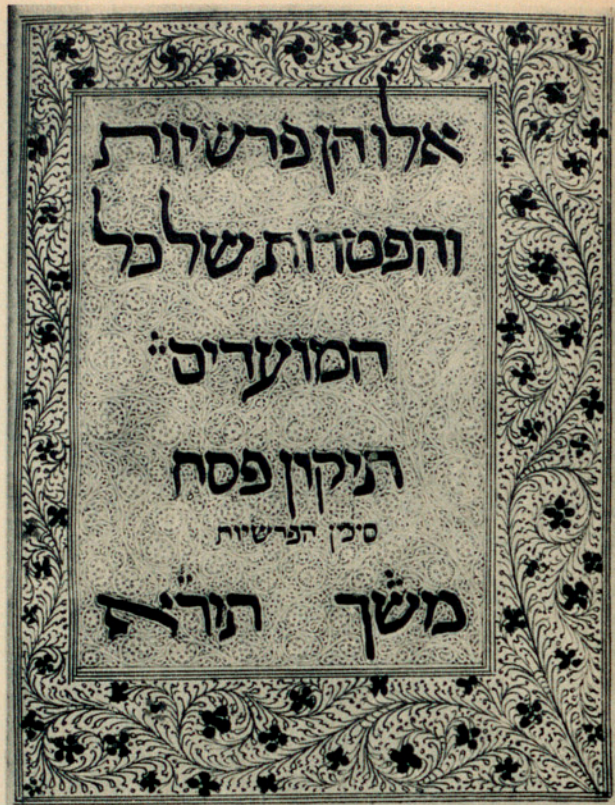 אלו הן פרשיות
והפטרות של כל
המועדים
תיקון פסח
סימן הפרשיות
מש״ך תור״א